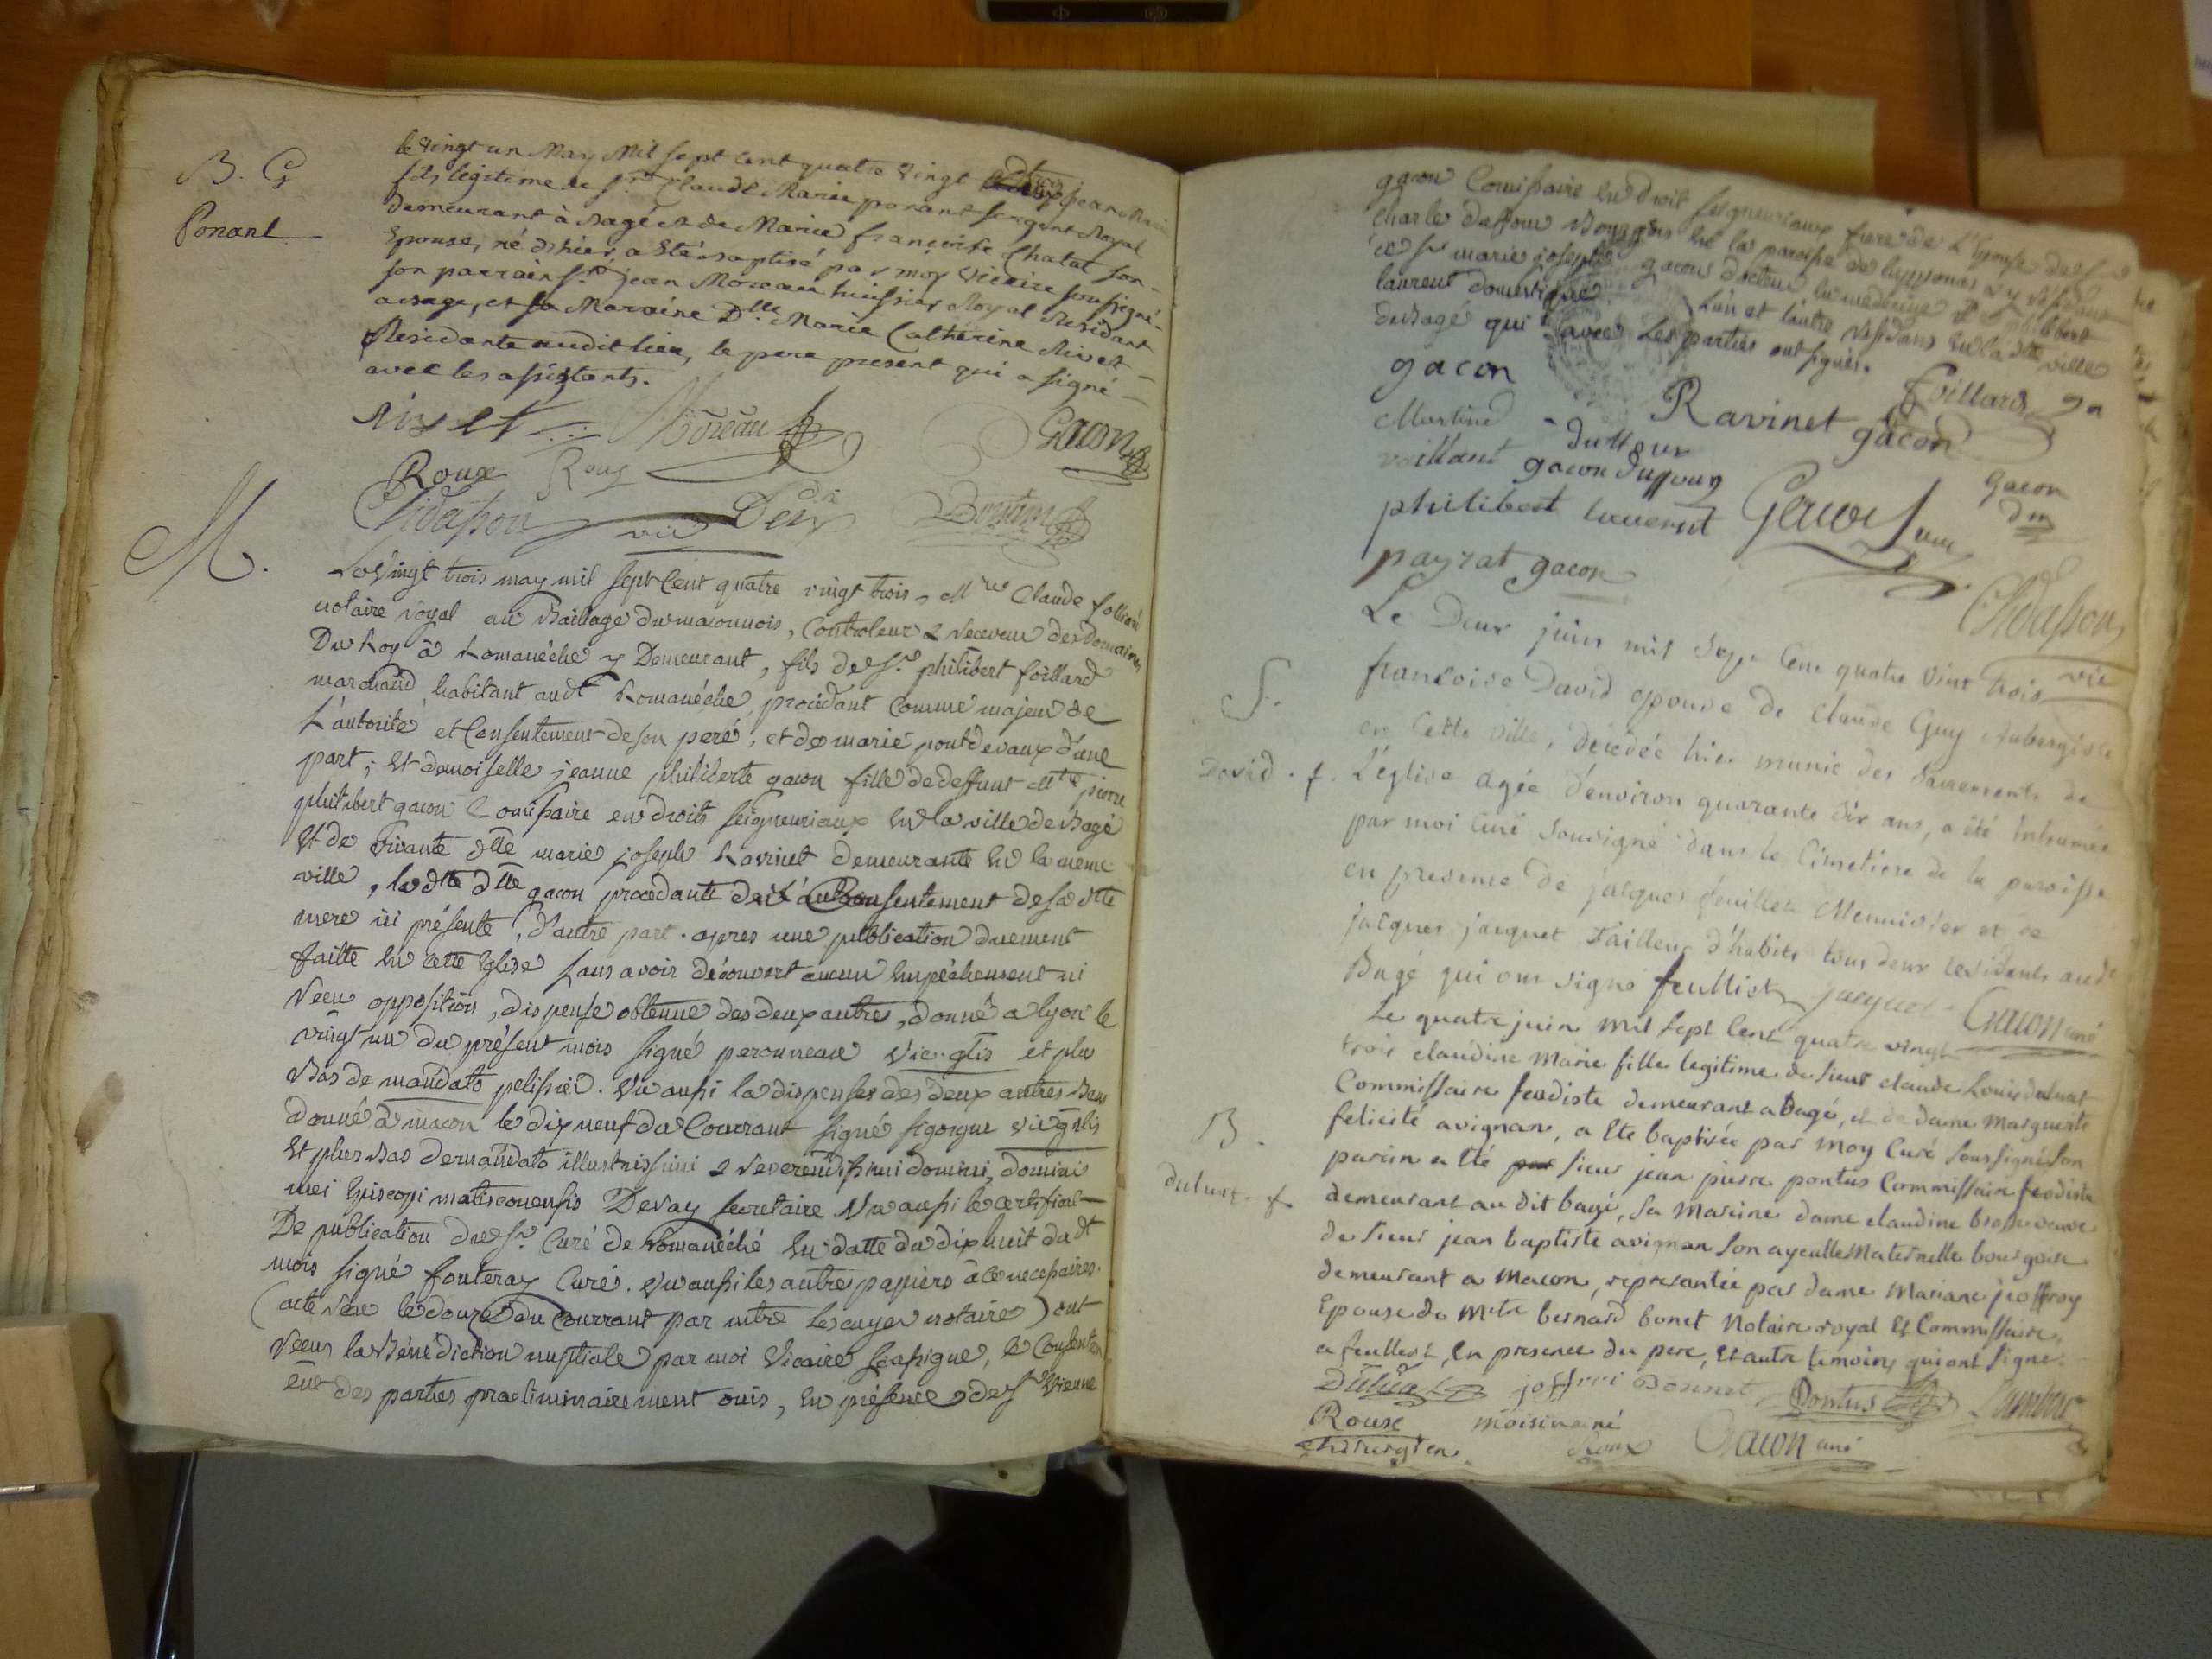 B. G
Ponant
le vingt un May Mil sept cent quatre vingt trois jean Marie
fils legitime de Sr. Claude Marie ponant sergent Royal
demeurant à Bagé et de Marie françoise Chatal son
Epouse, né d'hier, a été baptisé par moy vicaire soussigné
son parrain Sr. jean Moreau huissier Royal Residant
a bage, et sa Maraine Dlle. Marie Catherine Rivet
Residante audit lieu, le pere present qui a signé
avec les assistants.
rivet Moreau Gacon
Roux Roux
Chidasson vic
M.
Le vingt trois may mil sept Cent quatre vingt trois, Mre Claude foillard
notaire royal au Bailliage du maconnois, Controleur & receveur des Domaines
Du Roy à Romanéche y Demeurant, fils de Sr. philibert foillard
marchand habitant audt Romanéche, procédant comme majeur de
L'autorité et Consentement de son pere, et de marie pontdevaux d'une
part; et demoiselle jeanne philiberte gacon fille de deffunt Mtre pierre
philibert gacon Commissaire en droits seigneuriaux en la ville de Bagé
et de vivante dlle marie joseph Ravinet demeurante en la meme
ville, la dte dlle gacon procedante de Consentement de sa dte
mere ici présente, d'autre part. apres une publication duement
faitte en cette Eglise sans avoir découvert aucun empéchement ni
reçu opposition, dispense obtenue des deux autres, donné a lyon le
vingt un du présent mois signé peronneau vic. glis et plus
Bas de mandato pelissier. Vu aussi la dispense des deux autres bans
donné à macon le dix neuf du Courrant signé sigorgne vic gnlis
et plus bas demandato illustrissimi & reverendissimi domini, domini
mei Episcopi matisconensis Devay secretaire Vu aussi le certificat
De publication du Sr. Curé de Romanéché en datte du dix huit dudt
mois signé fonteray Curé. Vu aussi les autres papiers à ce necessaires.
(acte reçu le douze du Courrant par mtre notaire) ont
reçu la Bénédiction nuptiale par moi vicaire soussigné, le Consentem
ent des parties praeliminairement ouis, en présence de Sr
gacon Comissaire en droit seigneuriaux frere de L'épouse de Sr
Charle Duffour Bourgeois en la paroisse de
de Sr marie joseph gacon docteur en medecine philibert
laurent domestique L'un et l'autre résidans en la dte ville
de Bagé qui avec les parties ont signés.
gacon Ravinet foillard
gacon
duffour
gacon duffour
philibert laurent Gacon
Gacon
dm
payrat gacon
Chidasson
vic
S.
David. f.
Le Deux juin mil Sept Cent quatre vint trois
françoise David epouse de claude Guy Aubergiste
en Cette ville, décédée hier munie des Sacrements de
L'église agée d'environ quarante dix ans, a été inhumée
par moi Curé Sousigné dans le Cimetiere de la paroisse
en presence de jacques feuillet Menuisier et de
jacques jacquet Tailleur d'habits tous deux residents audt
Bagé qui ont signé feulliet jacquet Gacon curé
B.
duluat. f
Le quatre juin mil sept Cent quatre vingt
trois claudine Marie fille legitime de sieur claude Louis duluat
Commissaire feodiste demeurant a Bagé, et de dame Marguerite
felicité avignan, a été baptisée par Moy Curé soussigné son
parain a été sieur jean pierre pontus Commissaire feodiste
demeurant au dit bagé, sa Maraine dame claudine brosse veuve
de sieur jean baptiste avignan son ayeulle Maternelle bourgoise
demeurant a Macon, representée par dame Mariane jeoffroy
Epouse de Mtre bernard bonet Notaire royal et Commissaire
a feullest, en presence du pere, et autre temoins qui ont signes.
Duluat joffroi Bonnet Pontus Lambert
Roux
chirurgien
moisin ainé
Roux
Gacon curé